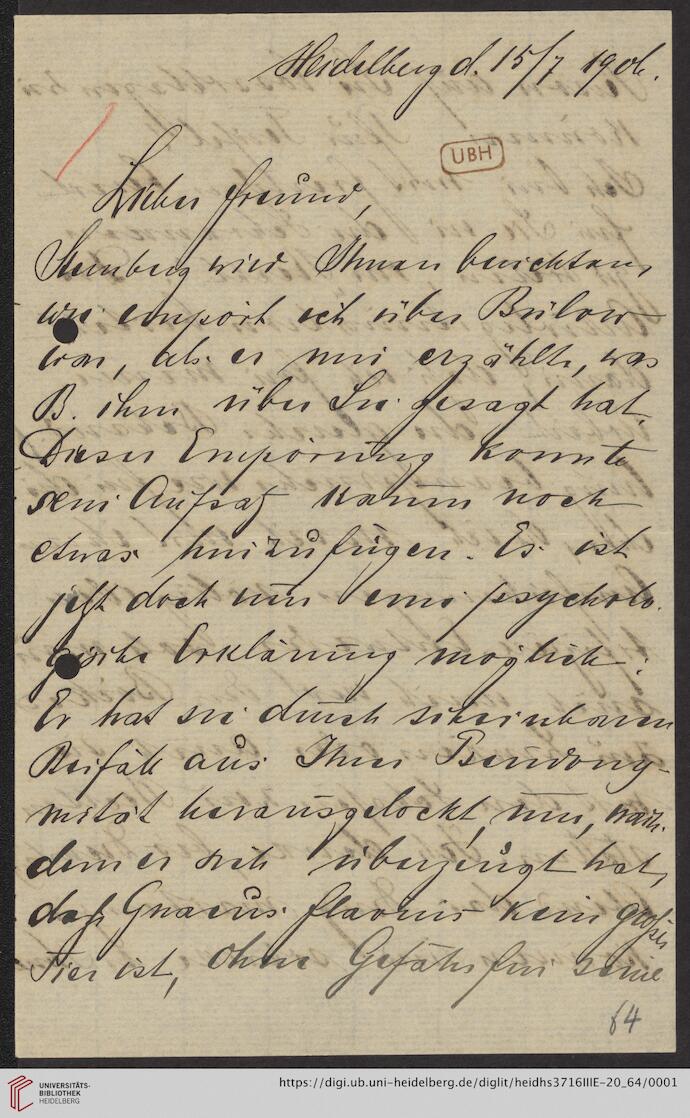 Heidelberg d. 15/7 1906.
UBH
Lieber Freund,
Sternberg wird Ihnen berichten,
wie empört ich über Bülow
war, als er mir erzählte, was
B. ihm über Sie gesagt hat.
Dieser Empörung konnte
sein Aufsatz kaum noch
etwas hinzufügen. Es ist
jetzt doch nur eine psycholo-
gische Erklärung möglich:
Er hat sie durch scheinbaren
Beifall aus Ihrer Pseudony-
mität herausgelockt, um, nach-
dem er sich überzeugt hat,
daß Gnaeus Flavius kein großes
Tier ist, ohne Gefahr für seine
64
UNIVERSITÄTS-
BIBLIOTHEK
HEIDELBERG
https://digi.ub.uni-heidelberg.de/diglit/heidhs3716IIIE-20_64/0001